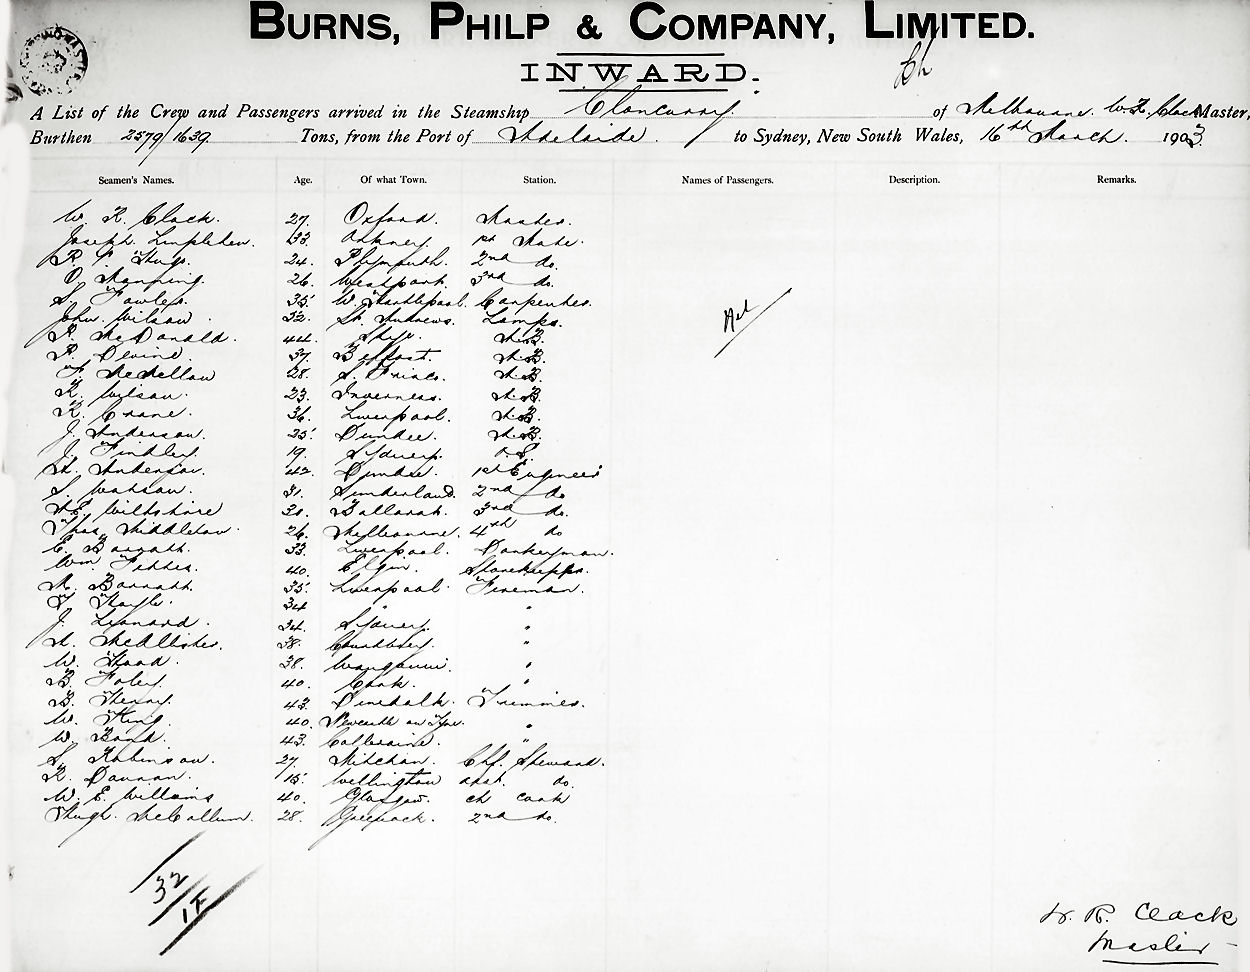 BURNS, PHILP & COMPANY, LIMITED.
INWARD.
A List of the Crew and Passengers arrived in the Steamship Cloncurry. of Melbourne. W. R. Clack Master,
Burthen 2579/1639. Tons, from the Port of Adelaide. to Sydney, New South Wales, 16th March. 1903.
Seamen's Names. Age. Of what Town. Station. Names of Passengers. Description. Remarks.
W. R. Clack. 27. Oxford. Master.
Joseph. 33. Orkney. 1st Mate.
24. Plymouth. 2nd do.
O. Manning. 26. Westport. 3rd do.
S. Fowles. 35. W. Hartlepool. Carpenter.
John. Wilson. 32. St. Andrews. Lamps.
R. McDonald. 44. Skye. A.B.
P. Devine. 37. Belfast. A.B.
McMellow 28. A.B.
R. Wilson. 23. Inverness. A.B.
R. Crane. 36. Liverpool. A.B.
J. Anderson. 25. Dundee. A.B.
J. Finkley 19. Sydney. O.S.
A. Anderson. 42. Dundee. 1st Engineer
S. Watson. 31. Sunderland. 2nd do
Wiltshire 30. Ballarat. 3rd do.
Thos. Middleton. 26. Melbourne. 4th do
E. 33. Liverpool. Donkeyman.
Wm. 40. Elgin. Storekeeper.
35. Liverpool. Fireman.
34 " "
J. Leonard. 34. Sydney. "
A. McAllister. 38. "
W. Hood. 38. Wanganui. "
B. Foley. 40. Cork. "
B. Henry. 43. Dundalk. Trimmer.
W. King. 40. Newcastle on Tyne. "
W. Bond. 43. Colleraine. "
S. Robinson. 27. Mitchan. Chf. Steward.
R. 15. Wellington asst. do.
W. E. Williams 40. Glasgow. ch cook
Hugh. McCallum. 28. Greenock. 2nd do.
Nil
32
1F
W. R. Clack
Master